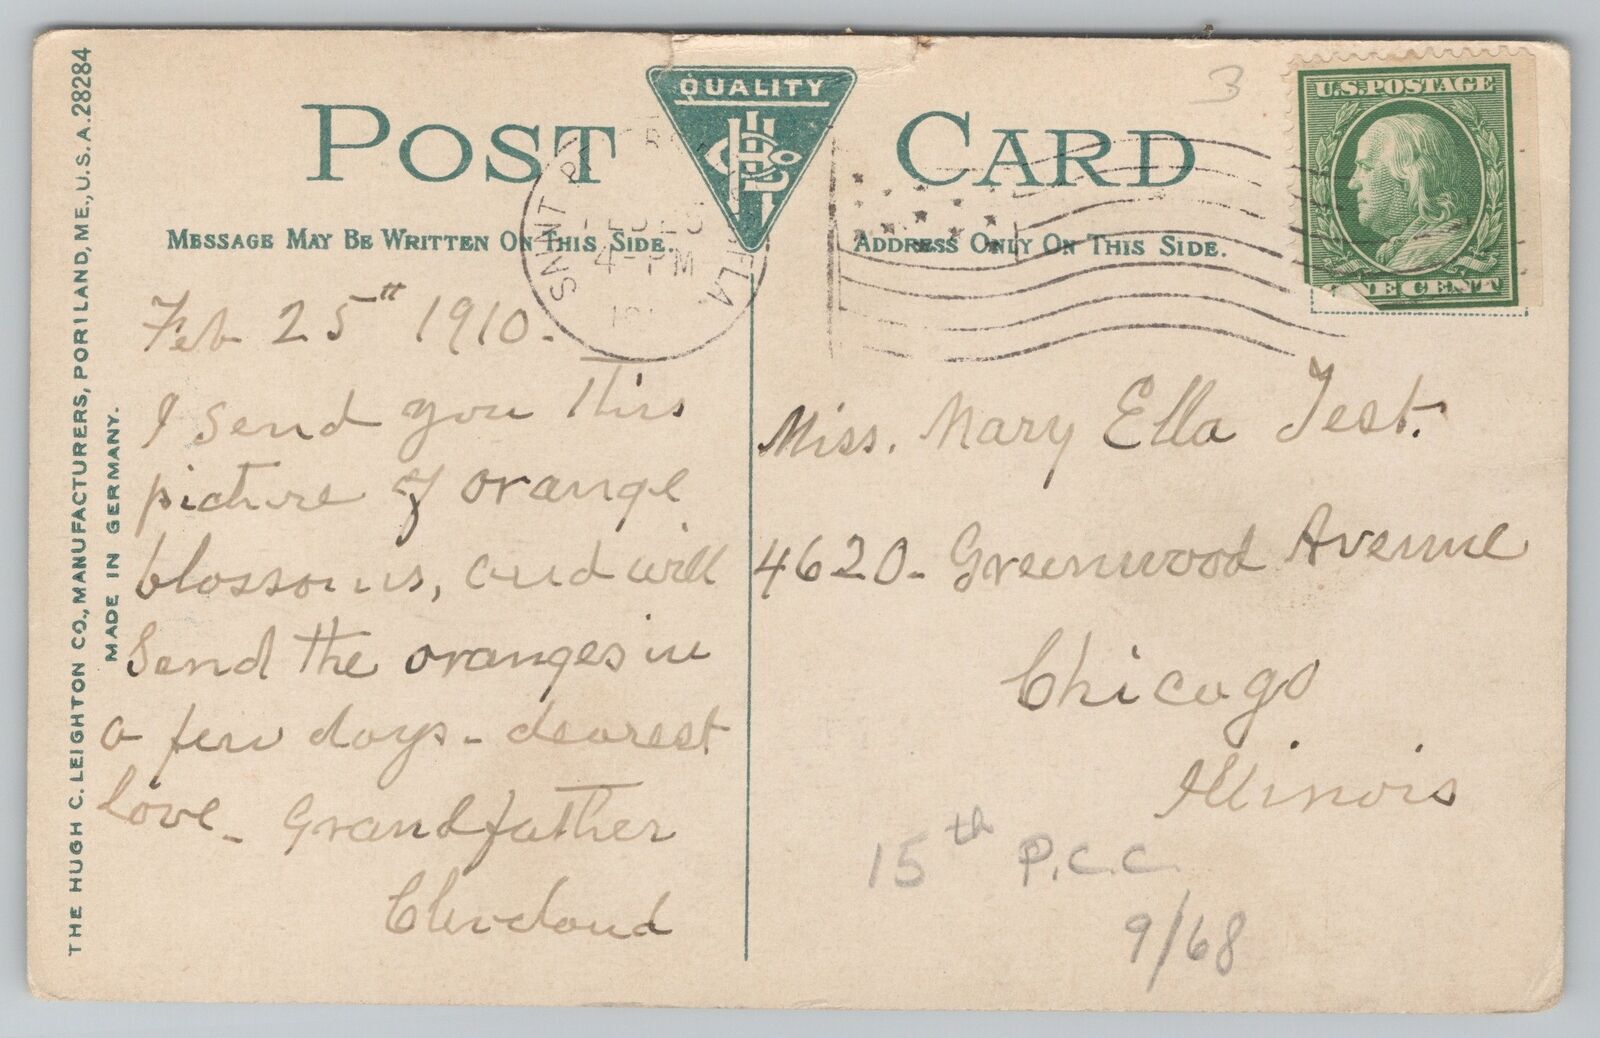 POST CARD
QUALITY
MESSAGE MAY BE WRITTEN ON THIS SIDE.
ADDRESS ONLY ON THIS SIDE.
3
U.S. POSTAGE
ONE CENT
SAINT FLA
4-PM
THE HUGH C. LEIGHTON CO., MANUFACTURERS, PORTLAND, ME., U.S.A. 28284
MADE IN GERMANY.
Feb 25th 1910.
I send you this
picture of orange
blossoms, and will
send the oranges in
a few days - dearest
love - Grandfather
Cleveland
Miss. Mary Ella Test.
4620 - Greenwood Avenue
Chicago
Illinois
15th P.C.C.
9/68